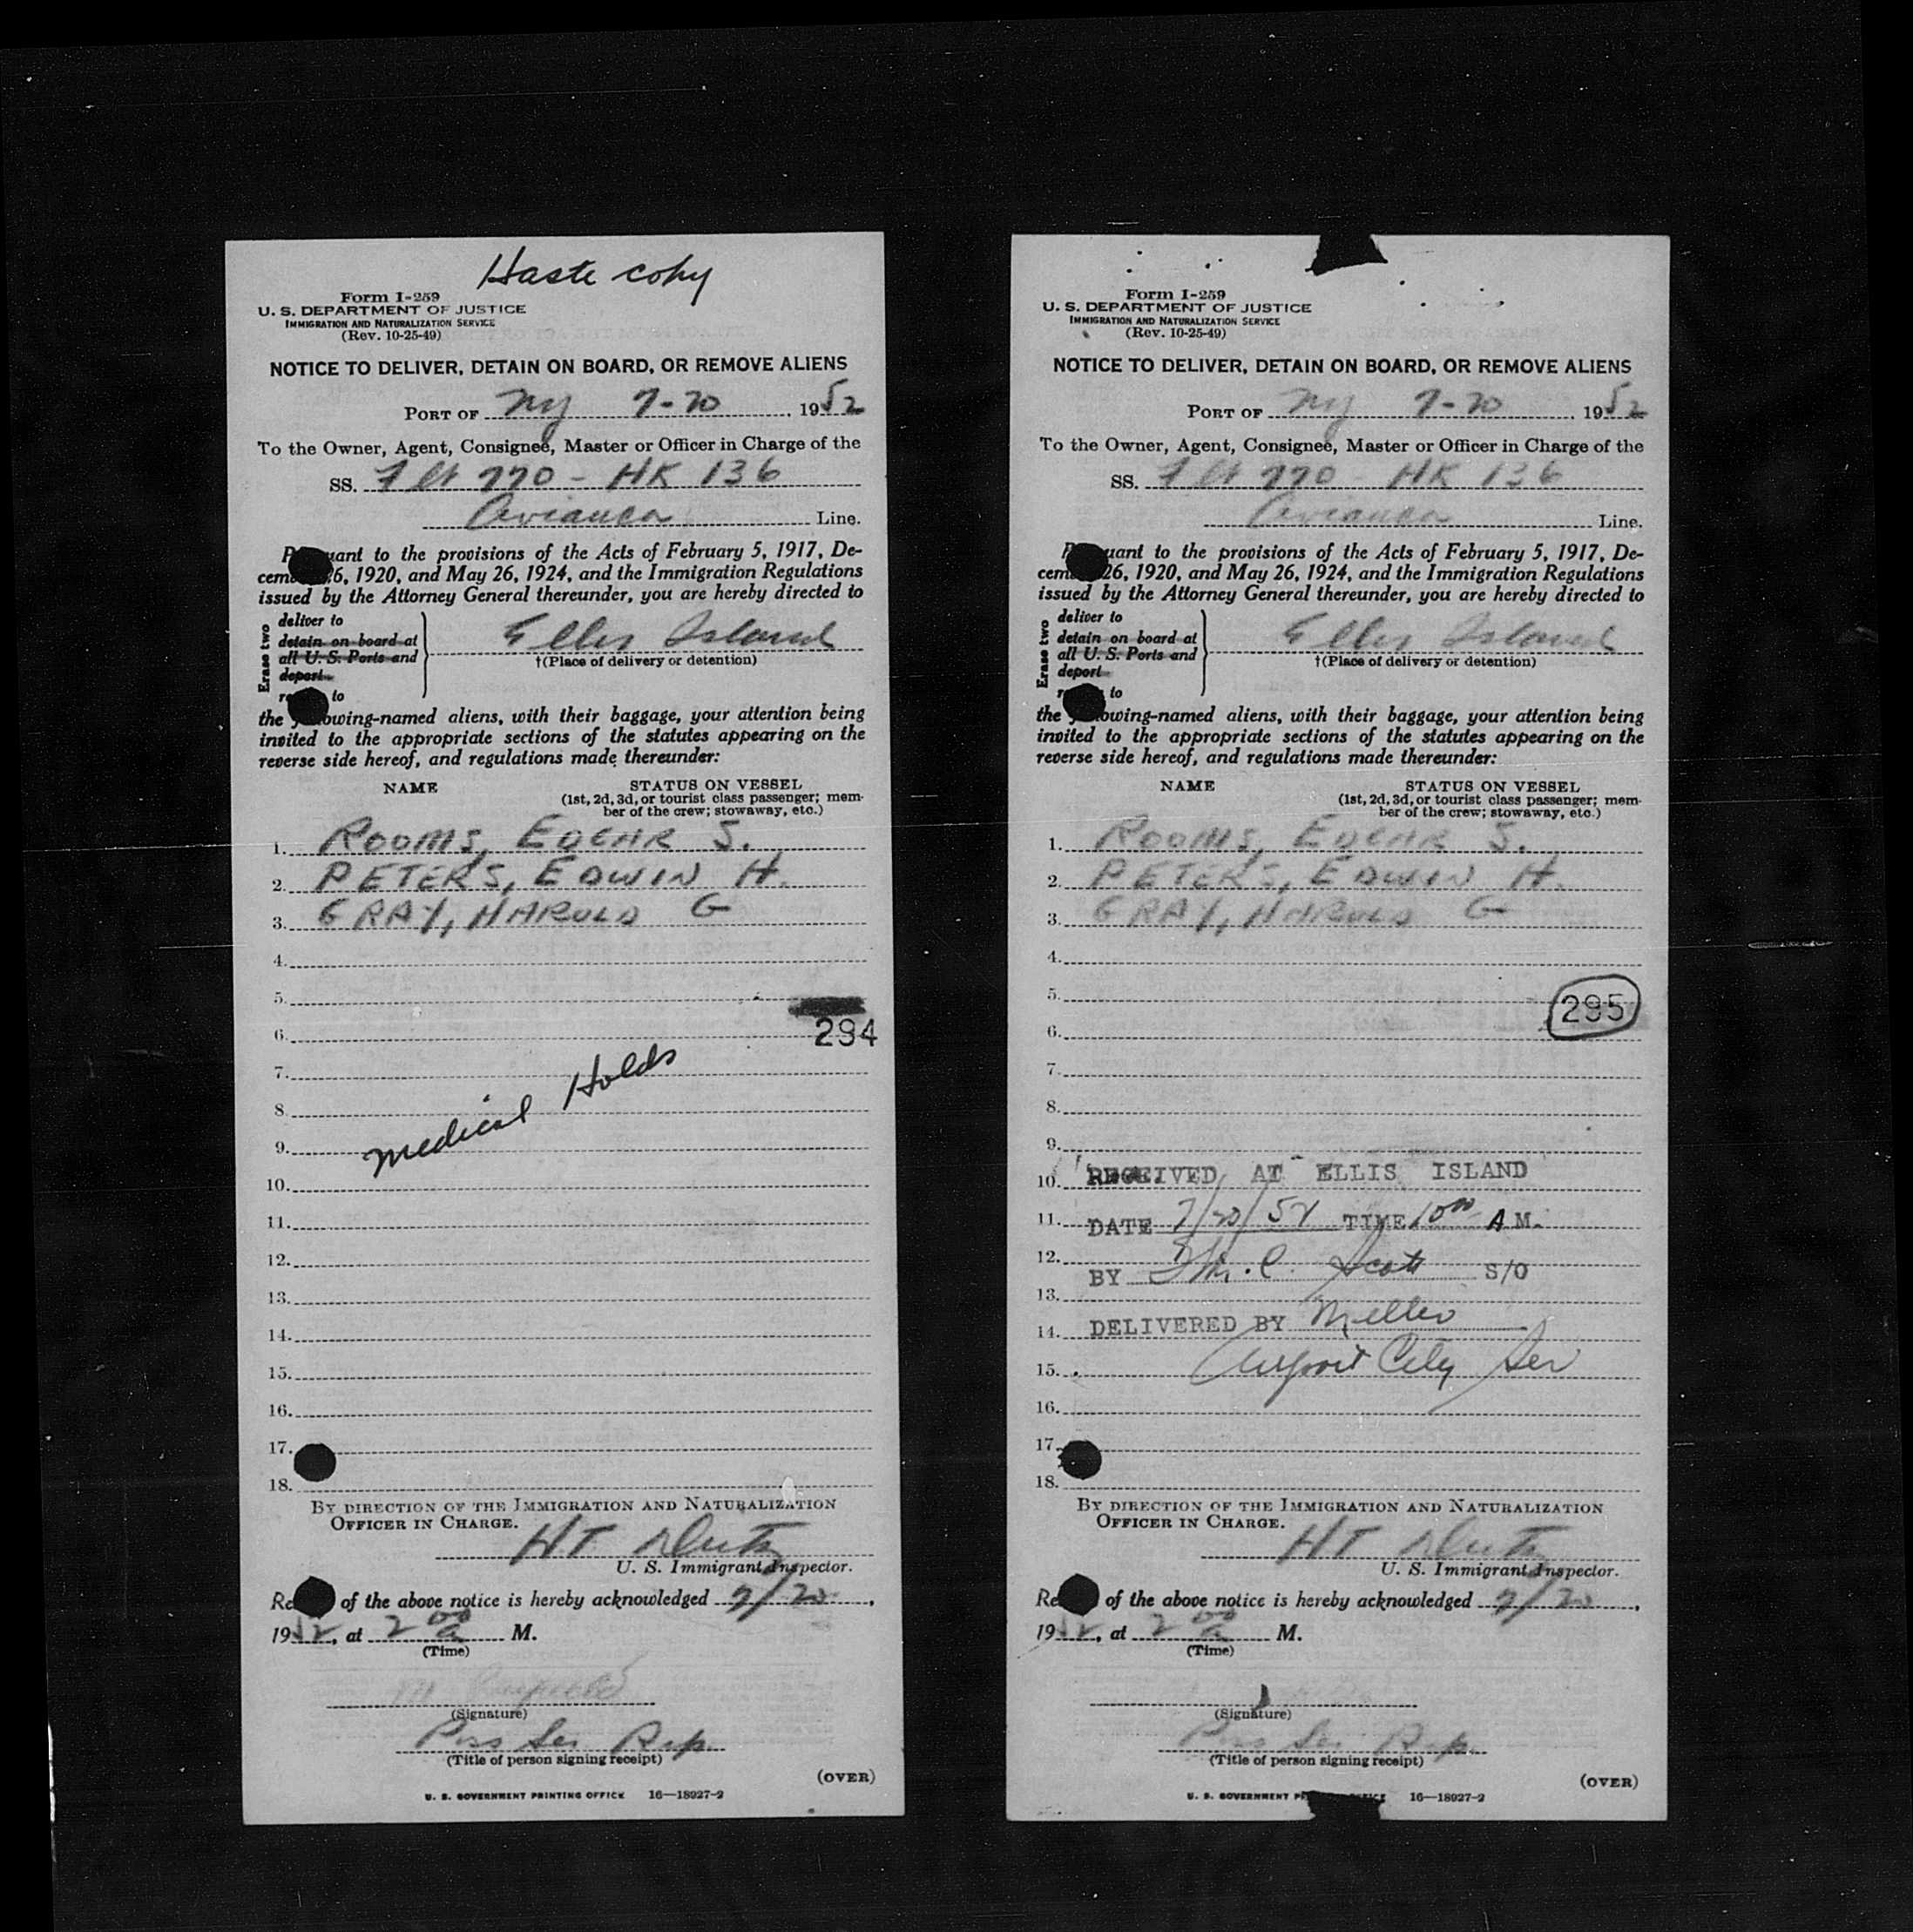 Haste copy
Form I-259
U. S. DEPARTMENT OF JUSTICE
IMMIGRATION AND NATURALIZATION SERVICE
(Rev. 10-25-49)
NOTICE TO DELIVER, DETAIN ON BOARD, OR REMOVE ALIENS
PORT OF NY 7-20, 1952
To the Owner, Agent, Consignee, Master or Officer in Charge of the
SS. Flt 770 - HK 136
Avianca Line.
uant to the provisions of the Acts of February 5, 1917, De-
cem 26, 1920, and May 26, 1924, and the Immigration Regulations
issued by the Attorney General thereunder, you are hereby directed to
Erase two
deliver to
detain on board at
all U. S. Ports and
deport
to
Ellis Island
†(Place of delivery or detention)
the owing-named aliens, with their baggage, your attention being
invited to the appropriate sections of the statutes appearing on the
reverse side hereof, and regulations made thereunder:
NAME STATUS ON VESSEL
(1st, 2d, 3d, or tourist class passenger; mem-
ber of the crew; stowaway, etc.)
1. ROOMS, EDGAR S.
2. PETERS, EDWIN H.
3. GRAY, HAROLD G
4.
5.
6. 294
7.
8.
9.
Medical Holds
10.
11.
12.
13.
14.
15.
16.
17.
18.
BY DIRECTION OF THE IMMIGRATION AND NATURALIZATION
OFFICER IN CHARGE.
HT
U. S. Immigrant Inspector.
Re of the above notice is hereby acknowledged 7/20,
1952, at 2 00 a M.
(Time)
(Signature)
Pass Ser Rep.
(Title of person signing receipt)
(OVER)
U. S. GOVERNMENT PRINTING OFFICE 16—18927-2
Form I-259
U. S. DEPARTMENT OF JUSTICE
IMMIGRATION AND NATURALIZATION SERVICE
(Rev. 10-25-49)
NOTICE TO DELIVER, DETAIN ON BOARD, OR REMOVE ALIENS
PORT OF NY 7-20, 1952
To the Owner, Agent, Consignee, Master or Officer in Charge of the
SS. Flt 770 - HK 136
Avianca Line.
uant to the provisions of the Acts of February 5, 1917, De-
cem 26, 1920, and May 26, 1924, and the Immigration Regulations
issued by the Attorney General thereunder, you are hereby directed to
Erase two
deliver to
detain on board at
all U. S. Ports and
deport
to
Ellis Island
†(Place of delivery or detention)
the owing-named aliens, with their baggage, your attention being
invited to the appropriate sections of the statutes appearing on the
reverse side hereof, and regulations made thereunder:
NAME STATUS ON VESSEL
(1st, 2d, 3d, or tourist class passenger; mem-
ber of the crew; stowaway, etc.)
1. ROOMS, EDGAR S.
2. PETERS, EDWIN H.
3. GRAY, HAROLD G
4.
5. 295
6.
7.
8.
9.
10. RECEIVED AT ELLIS ISLAND
11. DATE 7/20/52 TIME 10 00 A M.
12. BY C. Scott S/O
13.
14. DELIVERED BY Miller
15. Airport City Ser
16.
17.
18.
BY DIRECTION OF THE IMMIGRATION AND NATURALIZATION
OFFICER IN CHARGE.
HT
U. S. Immigrant Inspector.
Re of the above notice is hereby acknowledged 7/20,
1952, at 2 00 a M.
(Time)
(Signature)
Pass Ser Rep.
(Title of person signing receipt)
(OVER)
U. S. GOVERNMENT 16—18927-2